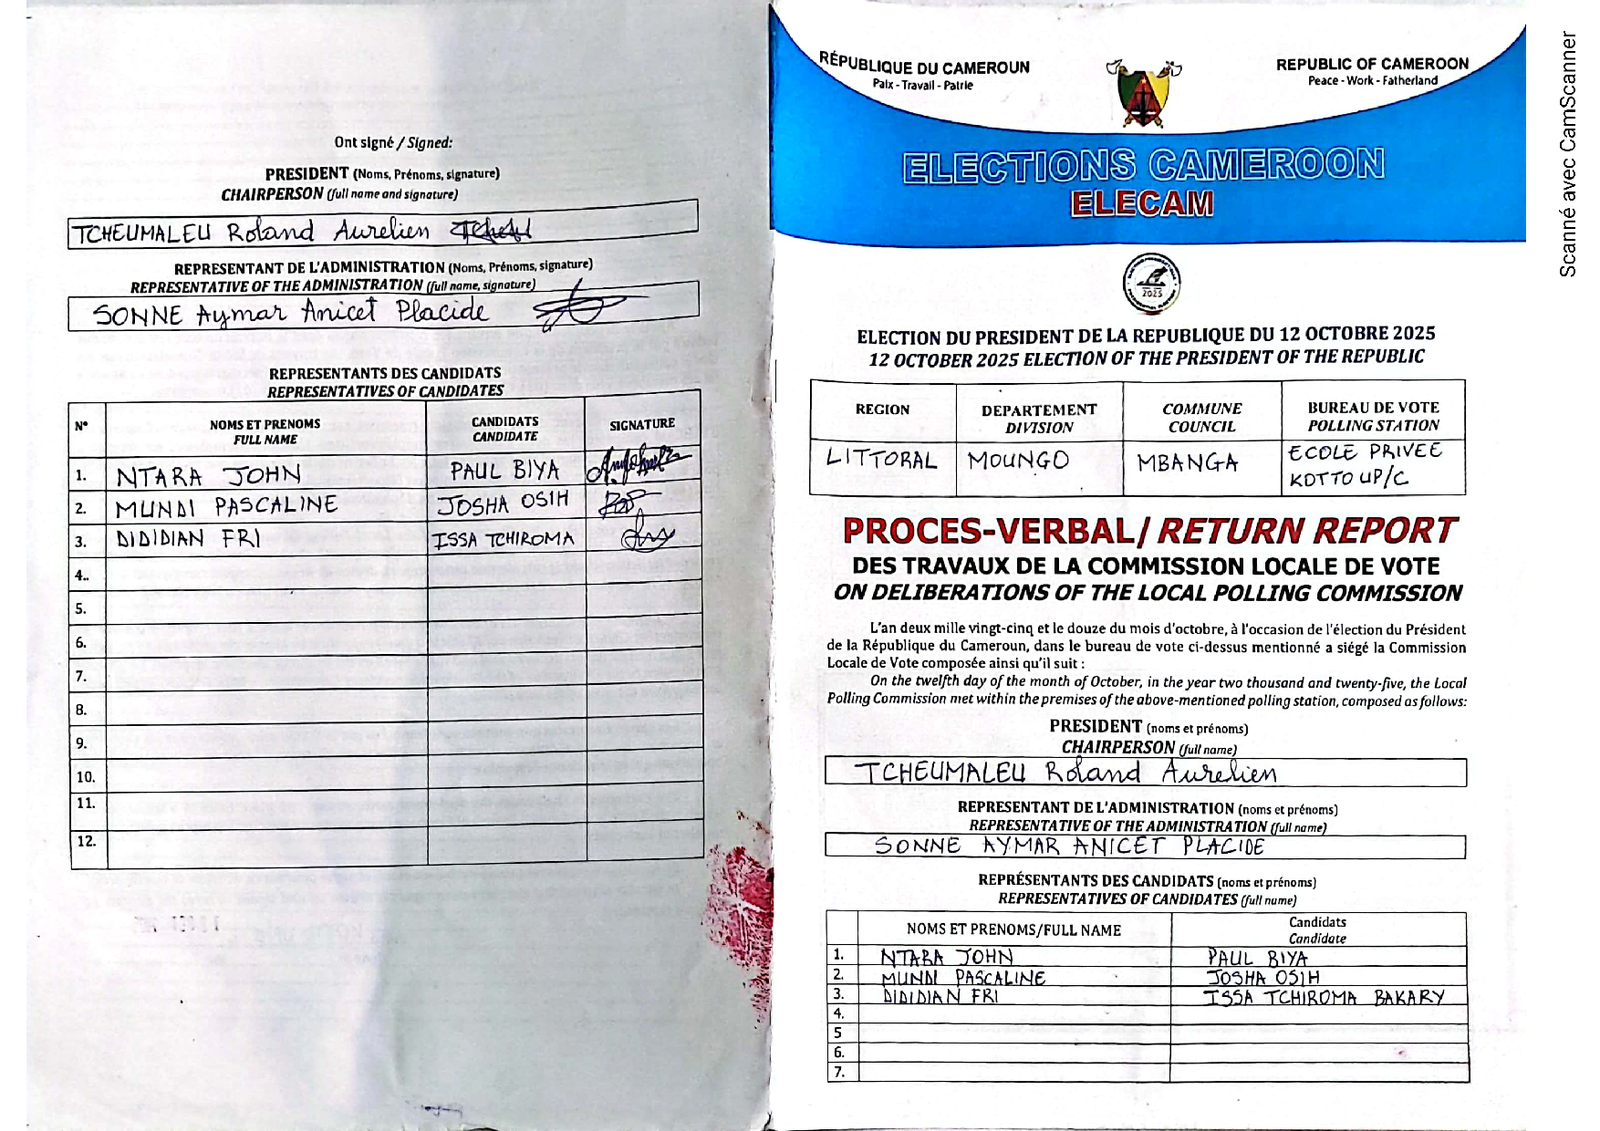 Ont signé / Signed:
PRESIDENT (Noms, Prénoms, signature)
CHAIRPERSON (full name and signature)
TCHEUMALEU Roland Aurelien
REPRESENTANT DE L'ADMINISTRATION (Noms, Prénoms, signature)
REPRESENTATIVE OF THE ADMINISTRATION (full name, signature)
SONNE Aymar Anicet Placide
REPRESENTANTS DES CANDIDATS
REPRESENTATIVES OF CANDIDATES
N° NOMS ET PRENOMS CANDIDATS SIGNATURE
FULL NAME CANDIDATE
1. NTARA JOHN PAUL BIYA
2. MUNDI PASCALINE JOSHA OSIH
3. DIDIDIAN FRI ISSA TCHIROMA
4..
5.
6.
7.
8.
9.
10.
11.
12.
RÉPUBLIQUE DU CAMEROUN
Paix - Travail - Patrie
REPUBLIC OF CAMEROON
Peace - Work - Fatherland
ELECTIONS CAMEROON
ELECAM
2025
ELECTION DU PRESIDENT DE LA REPUBLIQUE DU 12 OCTOBRE 2025
12 OCTOBER 2025 ELECTION OF THE PRESIDENT OF THE REPUBLIC
REGION DEPARTEMENT COMMUNE BUREAU DE VOTE
DIVISION COUNCIL POLLING STATION
LITTORAL MOUNGO MBANGA ECOLE PRIVEE
KOTTO UP/C
PROCES-VERBAL/ RETURN REPORT
DES TRAVAUX DE LA COMMISSION LOCALE DE VOTE
ON DELIBERATIONS OF THE LOCAL POLLING COMMISSION
L'an deux mille vingt-cinq et le douze du mois d'octobre, à l'occasion de l'élection du Président
de la République du Cameroun, dans le bureau de vote ci-dessus mentionné a siégé la Commission
Locale de Vote composée ainsi qu'il suit :
On the twelfth day of the month of October, in the year two thousand and twenty-five, the Local
Polling Commission met within the premises of the above-mentioned polling station, composed as follows:
PRESIDENT (noms et prénoms)
CHAIRPERSON (full name)
TCHEUMALEU Roland Aurelien
REPRESENTANT DE L'ADMINISTRATION (noms et prénoms)
REPRESENTATIVE OF THE ADMINISTRATION (full name)
SONNE AYMAR ANICET PLACIDE
REPRÉSENTANTS DES CANDIDATS (noms et prénoms)
REPRESENTATIVES OF CANDIDATES (full name)
NOMS ET PRENOMS/FULL NAME Candidats
Candidate
1. NTARA JOHN PAUL BIYA
2. MUNDI PASCALINE JOSHA OSIH
3. DIDIDIAN FRI ISSA TCHIROMA BAKARY
4.
5
6.
7.
Scanné avec CamScanner